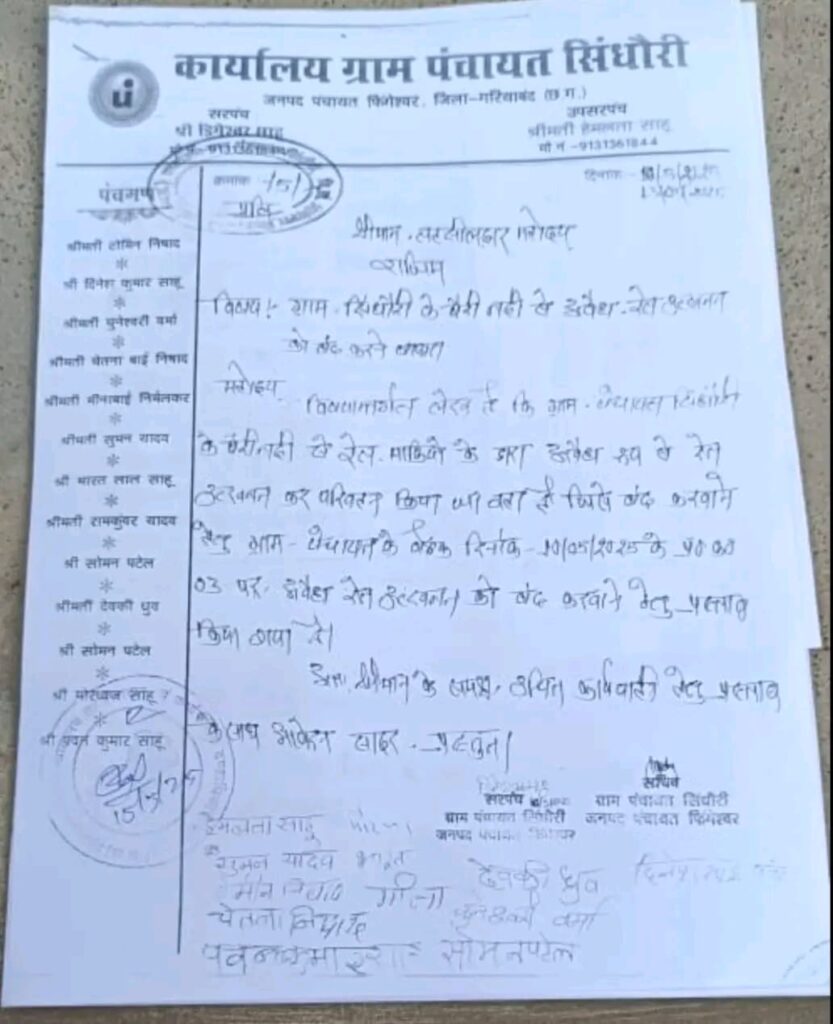 कार्यालय ग्राम पंचायत सिंधौरी
जनपद पंचायत फिंगेश्वर, जिला-गरियाबंद (छ ग.)
सरपंच
श्री डिगेश्वर साहू
उपसरपंच
श्रीमती हेमलता साहू
मो नं -9131361844
क्रमांक 15/
दिनांक-
प्रति
पंचगण
श्रीमती टोमिन निषाद
श्री दिनेश कुमार साहू
श्रीमती पुनेश्वरी वर्मा
श्रीमती चेतना बाई निषाद
श्रीमती मीनाबाई निर्मलकर
श्रीमती सुमन यादव
श्री भारत लाल साहू
श्रीमती रामकुंवर यादव
श्री सोमन पटेल
श्रीमती देवकी ध्रुव
श्री सोमन पटेल
श्री मोरध्वज साहू
श्री पवन कुमार साहू
15/5/25
श्रीमान् तहसीलदार महोदय
राजिम
विषय:- ग्राम-सिंधौरी के पैरी नदी से अवैध रेत उत्खनन
को बंद करने बाबत
महोदय
विषयान्तर्गत लेख है कि ग्राम-पंचायत सिंधौरी
के पैरी नदी से रेत माफियो के द्वारा अवैध रूप से रेत
उत्खनन कर परिवहन किया जा रहा है जिसे बंद करवाने
हेतु ग्राम-पंचायत के बैठक दिनांक-10/05/2025 के प्र० क्र०
03 पर अवैध रेत उत्खनन को बंद करवाने हेतु प्रस्ताव
किया गया है।
अतः श्रीमान के समक्ष उचित कार्यवाही हेतु प्रस्ताव
के साथ आवेदन सादर प्रस्तुत।
सरपंच
ग्राम पंचायत सिंधौरी
जनपद पंचायत फिंगेश्वर
सचिव
ग्राम पंचायत सिंधौरी
जनपद पंचायत फिंगेश्वर
हेमलता साहू
सुमन यादव
देवकी ध्रुव
चेतना निषाद
पवन कुमार साहू सोमन पटेल